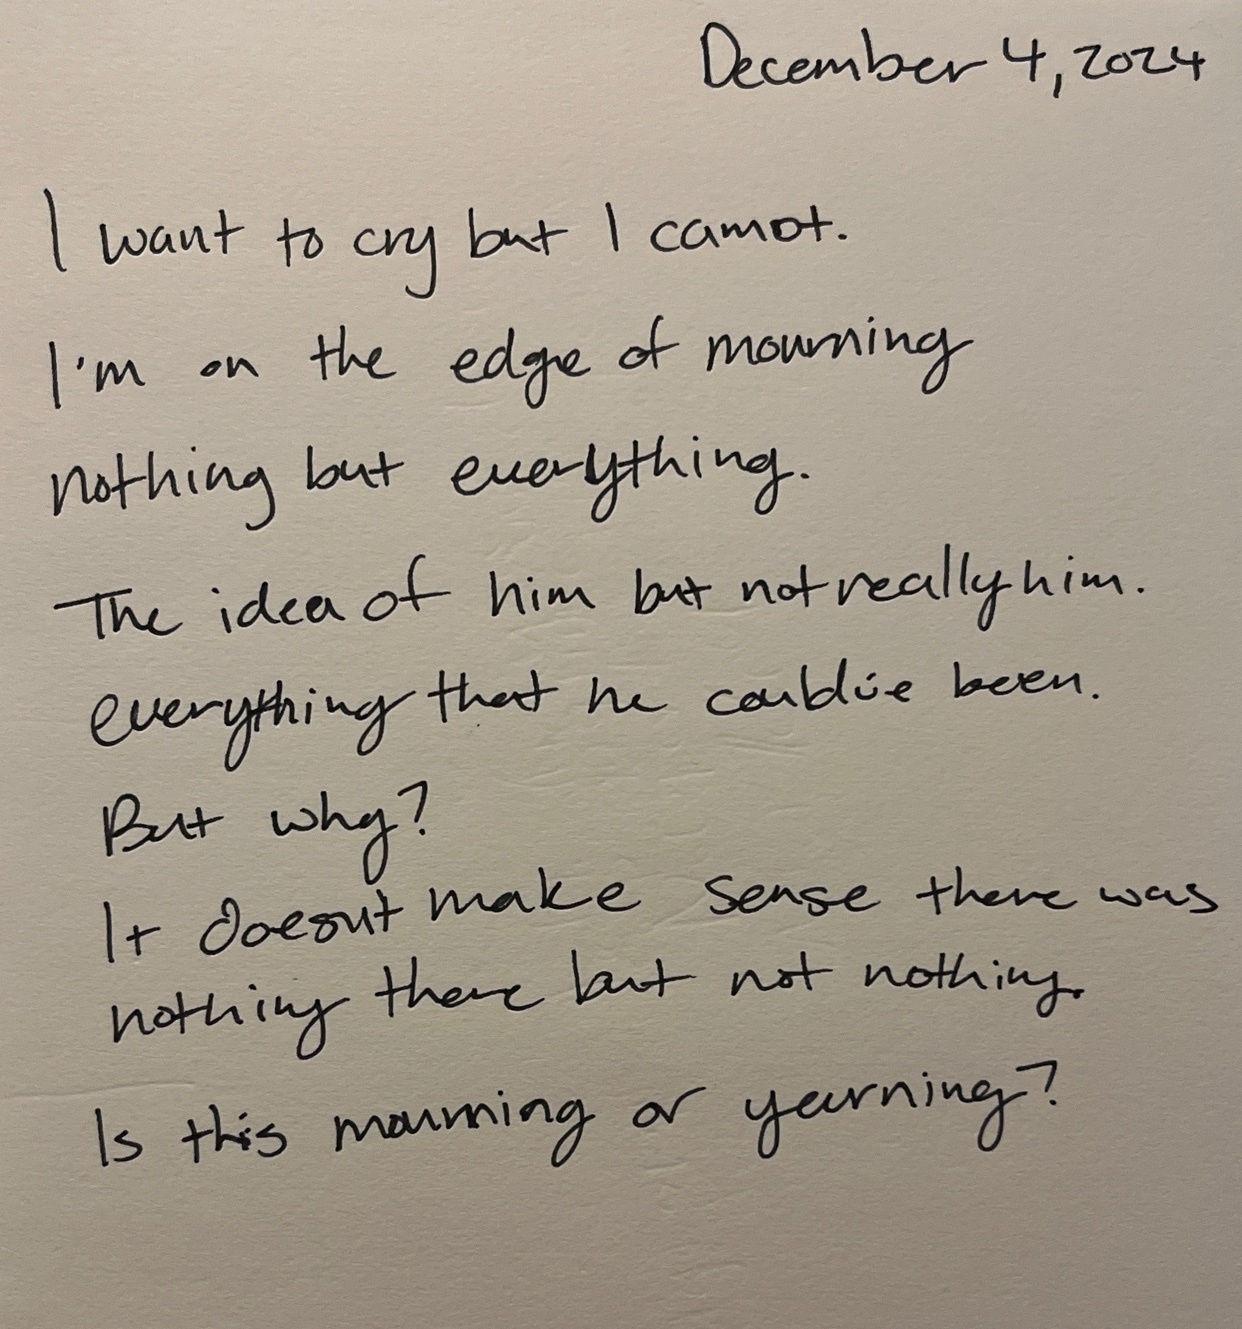 December 4, 2024
I want to cry but I cannot.
I'm on the edge of mourning
nothing but everything.
The idea of him but not really him.
everything that he could've been.
But why?
It doesn't make sense there was
nothing there but not nothing.
Is this mourning or yearning?